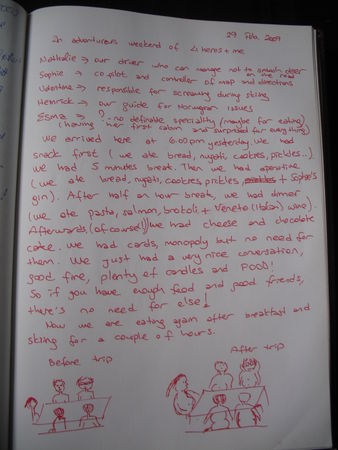 29 Feb. 2009
An adventurous weekend of 4 heros + me
Nathalie → our driver who can manage not to smash other on the road
Sophie → co pilot and controller of map and directions
Valentine → responsible for screaming during skiing
Henrick → our guide for Norwegian issues
Esma → ? - no definable speciality (maybe for eating)
(having her first cabin and surprised for everything)
We arrived here at 6:00 pm yesterday. We had
snack first (we ate bread, nygati, cookies, pickles..)
we had 5 minutes break. Then we had aperative
(we ate bread, nygati, cookies, pickles, + Sophie's
gin). After half an hour break, we had dinner
(we ate pasta, salmon, brokoli + Veneto (Italian) wine).
Afterwards, (of course!) we had cheese and chocolate
cake. We had cards, monopoly but no need for
them. We just had a very nice conversation,
good fire, plenty of candles and FOOD!
So if you have enough food and good friends,
there's no need for else!
Now we are eating again after breakfast and
skiing for a couple of hours.
Before trip
After trip